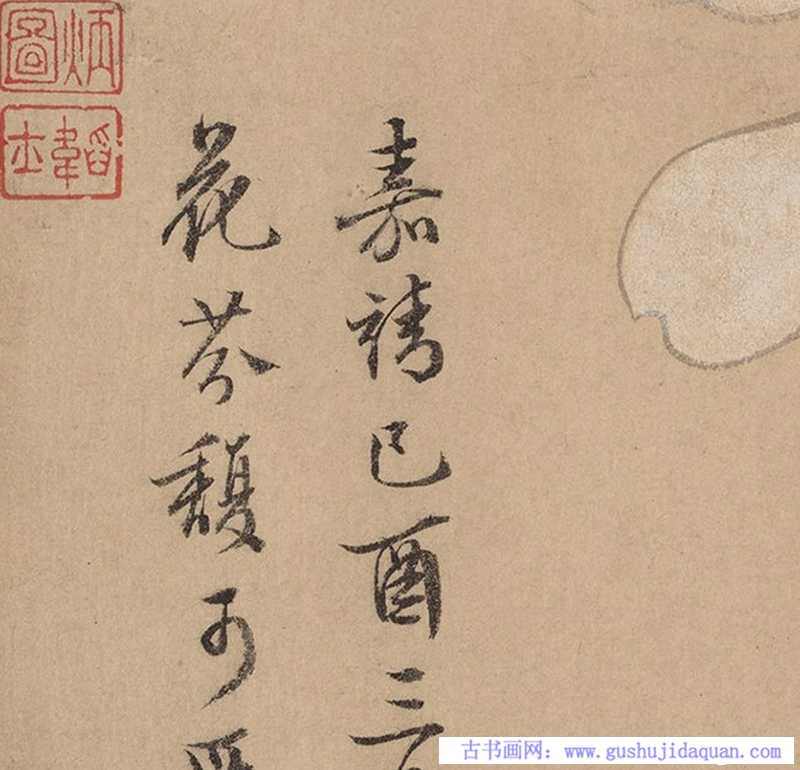 嘉靖己酉三
花芬馥可
炳圖
古书画网：www.gushujidaquan.com